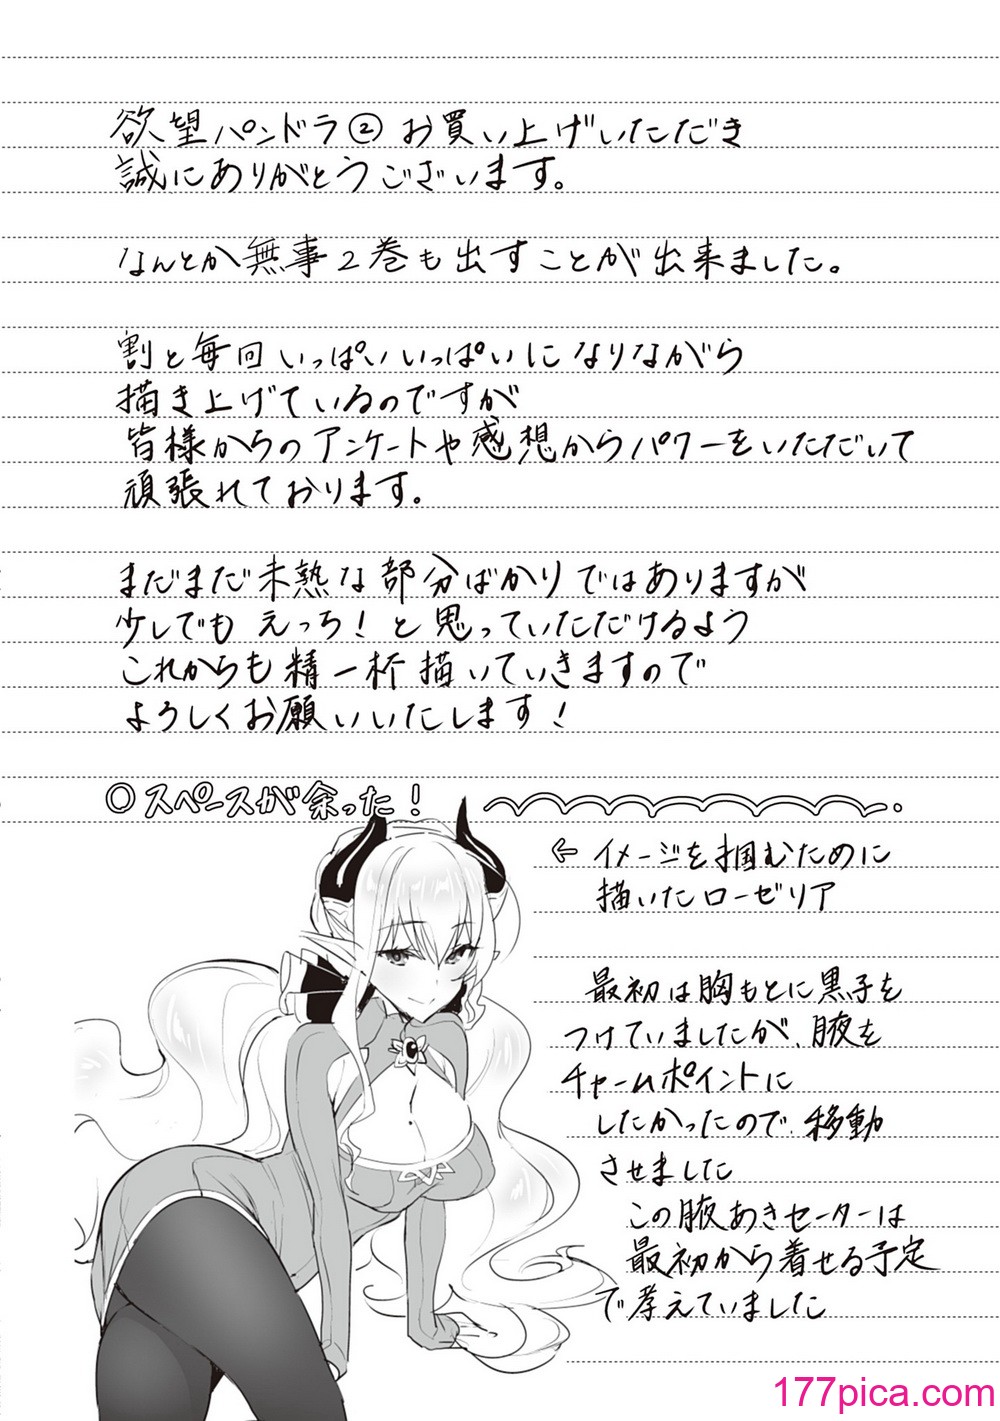 欲望パンドラ②お買い上げいただき
誠にありがとうございます。
なんとか無事2巻も出すことが出来ました。
割と毎回いっぱいいっぱいになりながら
描き上げているのですが
皆様からのアンケートや感想からパワーをいただいて
頑張れております。
まだまだ未熟な部分ばかりではありますが
少しでもえっち!と思っていただけるよう
これからも精一杯描いていきますので
よろしくお願いいたします!
○スペースが余った!
← イメージを掴むために
描いたローゼリア
最初は胸もとに黒子を
つけていましたが、腋を
チャームポイントに
したかったので、移動
させました
この腋あきセーターは
最初から着せる予定
で考えていました
177pica.com